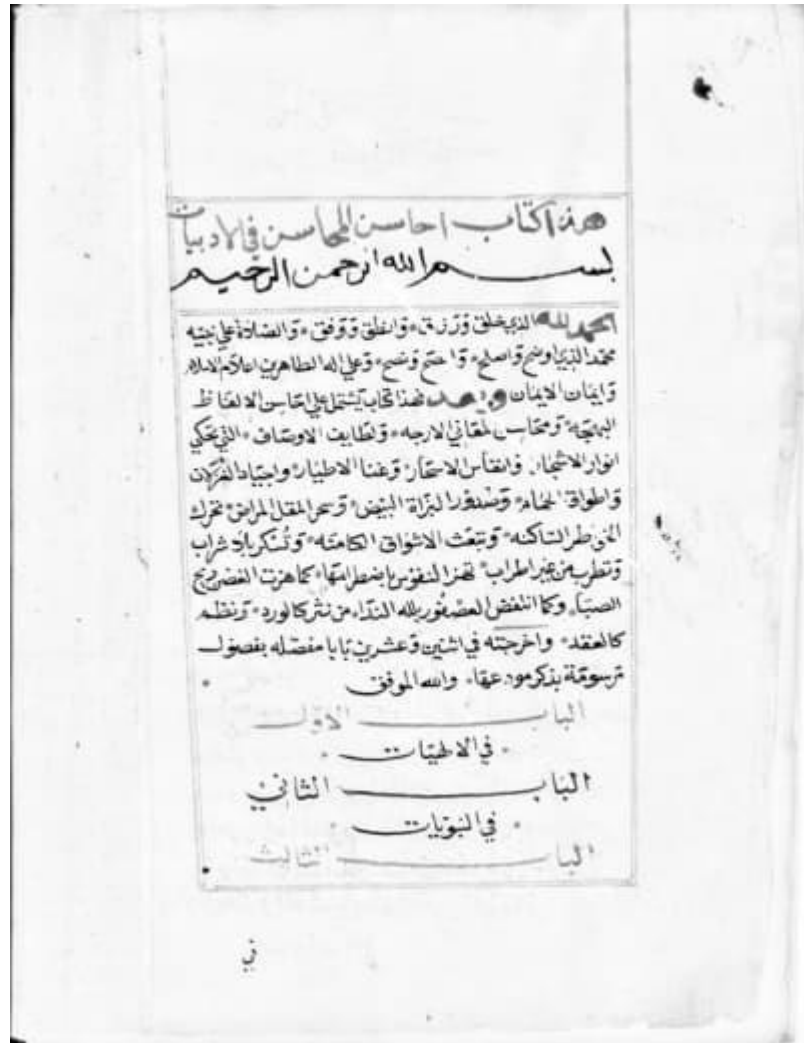 هذا كتاب احاسن المحاسن في الادبيات
بسم الله الرحمن الرحيم
الحمد لله الذي خلق ورزق وانطق ووفق والصلاة علي نبيه
محمد الذي اوضح واصلح ونصح وعلي اله الطاهرين اعلام الاسلام
وايمان الايمان وبعد فهذا كتاب يشتمل علي احاسن الالفاظ
البهجه ومحاسن المعاني الارجه ولطايف الاوصاف التي تحكي
انوار الاشجار وانفاس الاسحار وغنا الاطيار واجياد الغزلان
واطواق الحمام وصدور البزاة البيض وسحر المقل المراض تحرك
الخواطر الساكنه وتبعث الاشواق الكامنه وتسكر بلا شراب
وتطرب من غير اطراب تهز النفوس كما هزت الغصن ريح
الصبا وكما انتفض العصفور بلله الندا من نثر كالورد ونظم
كالعقد واخرجته في اثنين وعشرين بابا مفصله بفصول
مرسومة بذكر مودعها والله الموفق
الباب الاول
في الالهيات
الباب الثاني
في النبويات
الباب الثالث
في